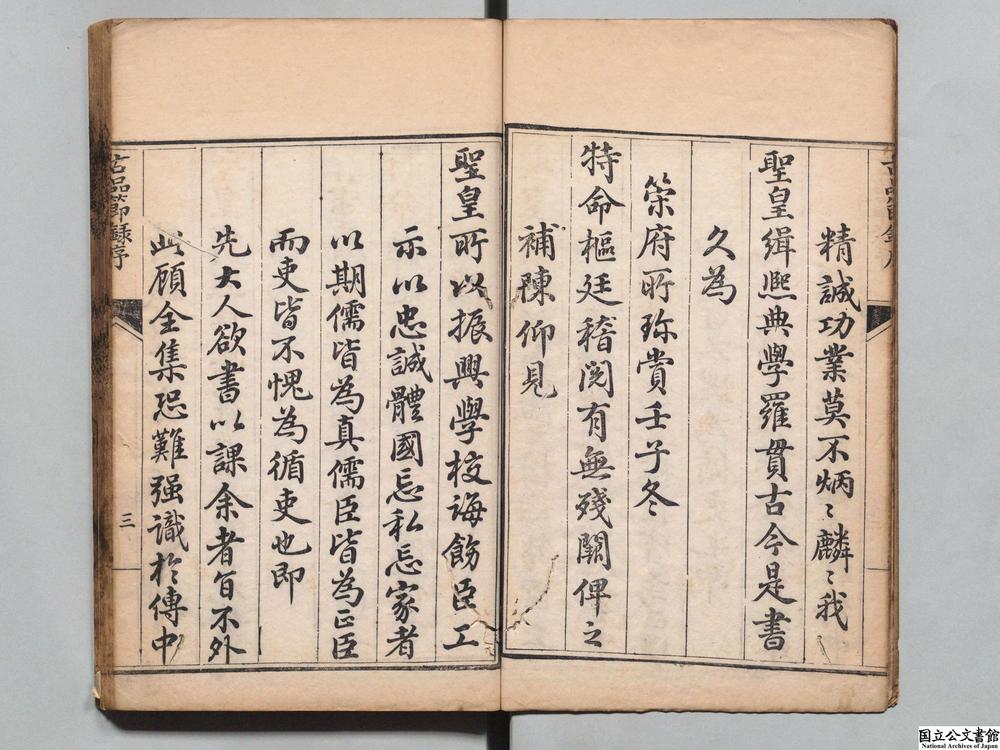 精誠功業莫不炳〻麟〻我
聖皇緝熙典學羅貫古今是書
久為
策府所珎賞壬子冬
特命樞廷稽閱有無殘闕俾之
補陳仰見
聖皇所以振興學校誨飭臣工
示以忠誠體國忘私忘家者
以期儒皆為真儒臣皆為正臣
而吏皆不愧為循吏也即
先大人欲書以課余者旨不外
此顧全集恐難强識於傳中
古品節錄序
三
国立公文書館
National Archives of Japan